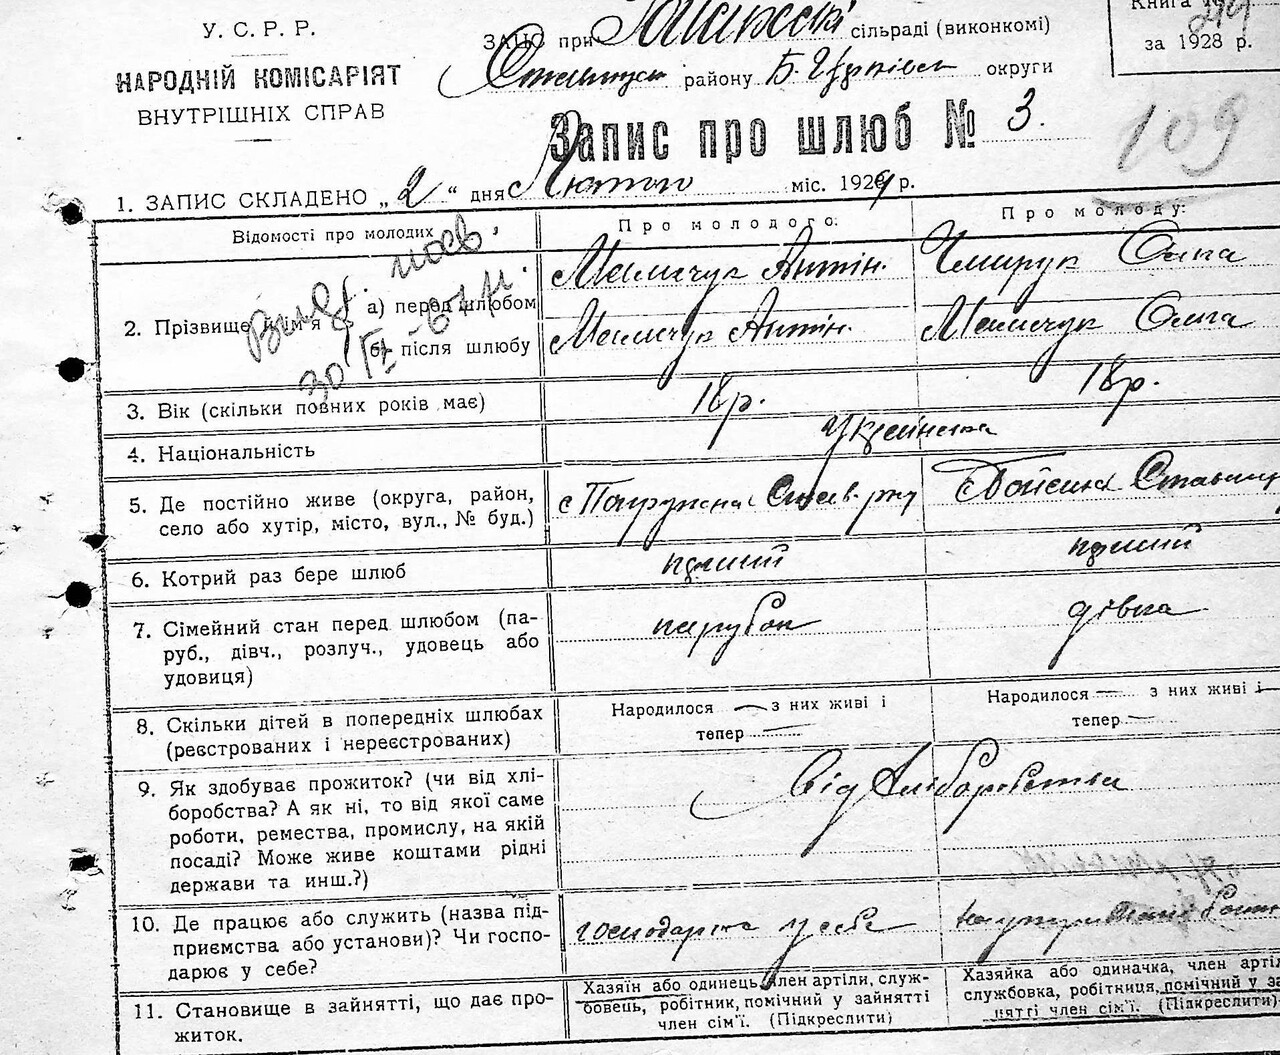 У. С. Р. Р.
НАРОДНІЙ КОМІСАРІЯТ
ВНУТРІШНІХ СПРАВ
ЗАЦС при сільраді (виконкомі)
району Б. Церківск округи
Книга
за 1928 р.
Запис про шлюб № 3.
109
1. ЗАПИС СКЛАДЕНО „2“ дня Лютого міс. 1929 р.
Відомості про молодих
Про молодого:
Про молоду:
2. Прізвище, ім'я
а) перед шлюбом
Мельничук Антін.
Чмирук Олга
б) після шлюбу
Мельничук Антін.
Мельничук Олга
30
3. Вік (скільки повних років має)
18 р.
18 р.
4. Національність
Українська
5. Де постійно живе (округа, район,
село або хутір, місто, вул., № буд.)
6. Котрий раз бере шлюб
перший
перший
7. Сімейний стан перед шлюбом (па-
руб., дівч., розлуч., удовець або
удовиця)
парубок
дівка
8. Скільки дітей в попередніх шлюбах
(реєстрованих і нереєстрованих)
Народилося — з них живі і
тепер —
Народилося — з них живі і —
тепер —
9. Як здобуває прожиток? (чи від хлі-
боробства? А як ні, то від якої саме
роботи, ремества, промислу, на якій
посаді? Може живе коштами рідні
держави та инш.?)
від хліборобства
10. Де працює або служить (назва під-
приємства або установи)? Чи госпо-
дарює у себе?
господарює у себе
11. Становище в зайнятті, що дає про-
житок.
Хазяїн або одинець, член артіли, служ-
бовець, робітник, помічний у зайнятті
член сім'ї. (Підкреслити)
Хазяйка або одиначка, член артіл
службовка, робітниця, помічний у за
нятті член сім'ї. (Підкреслити)